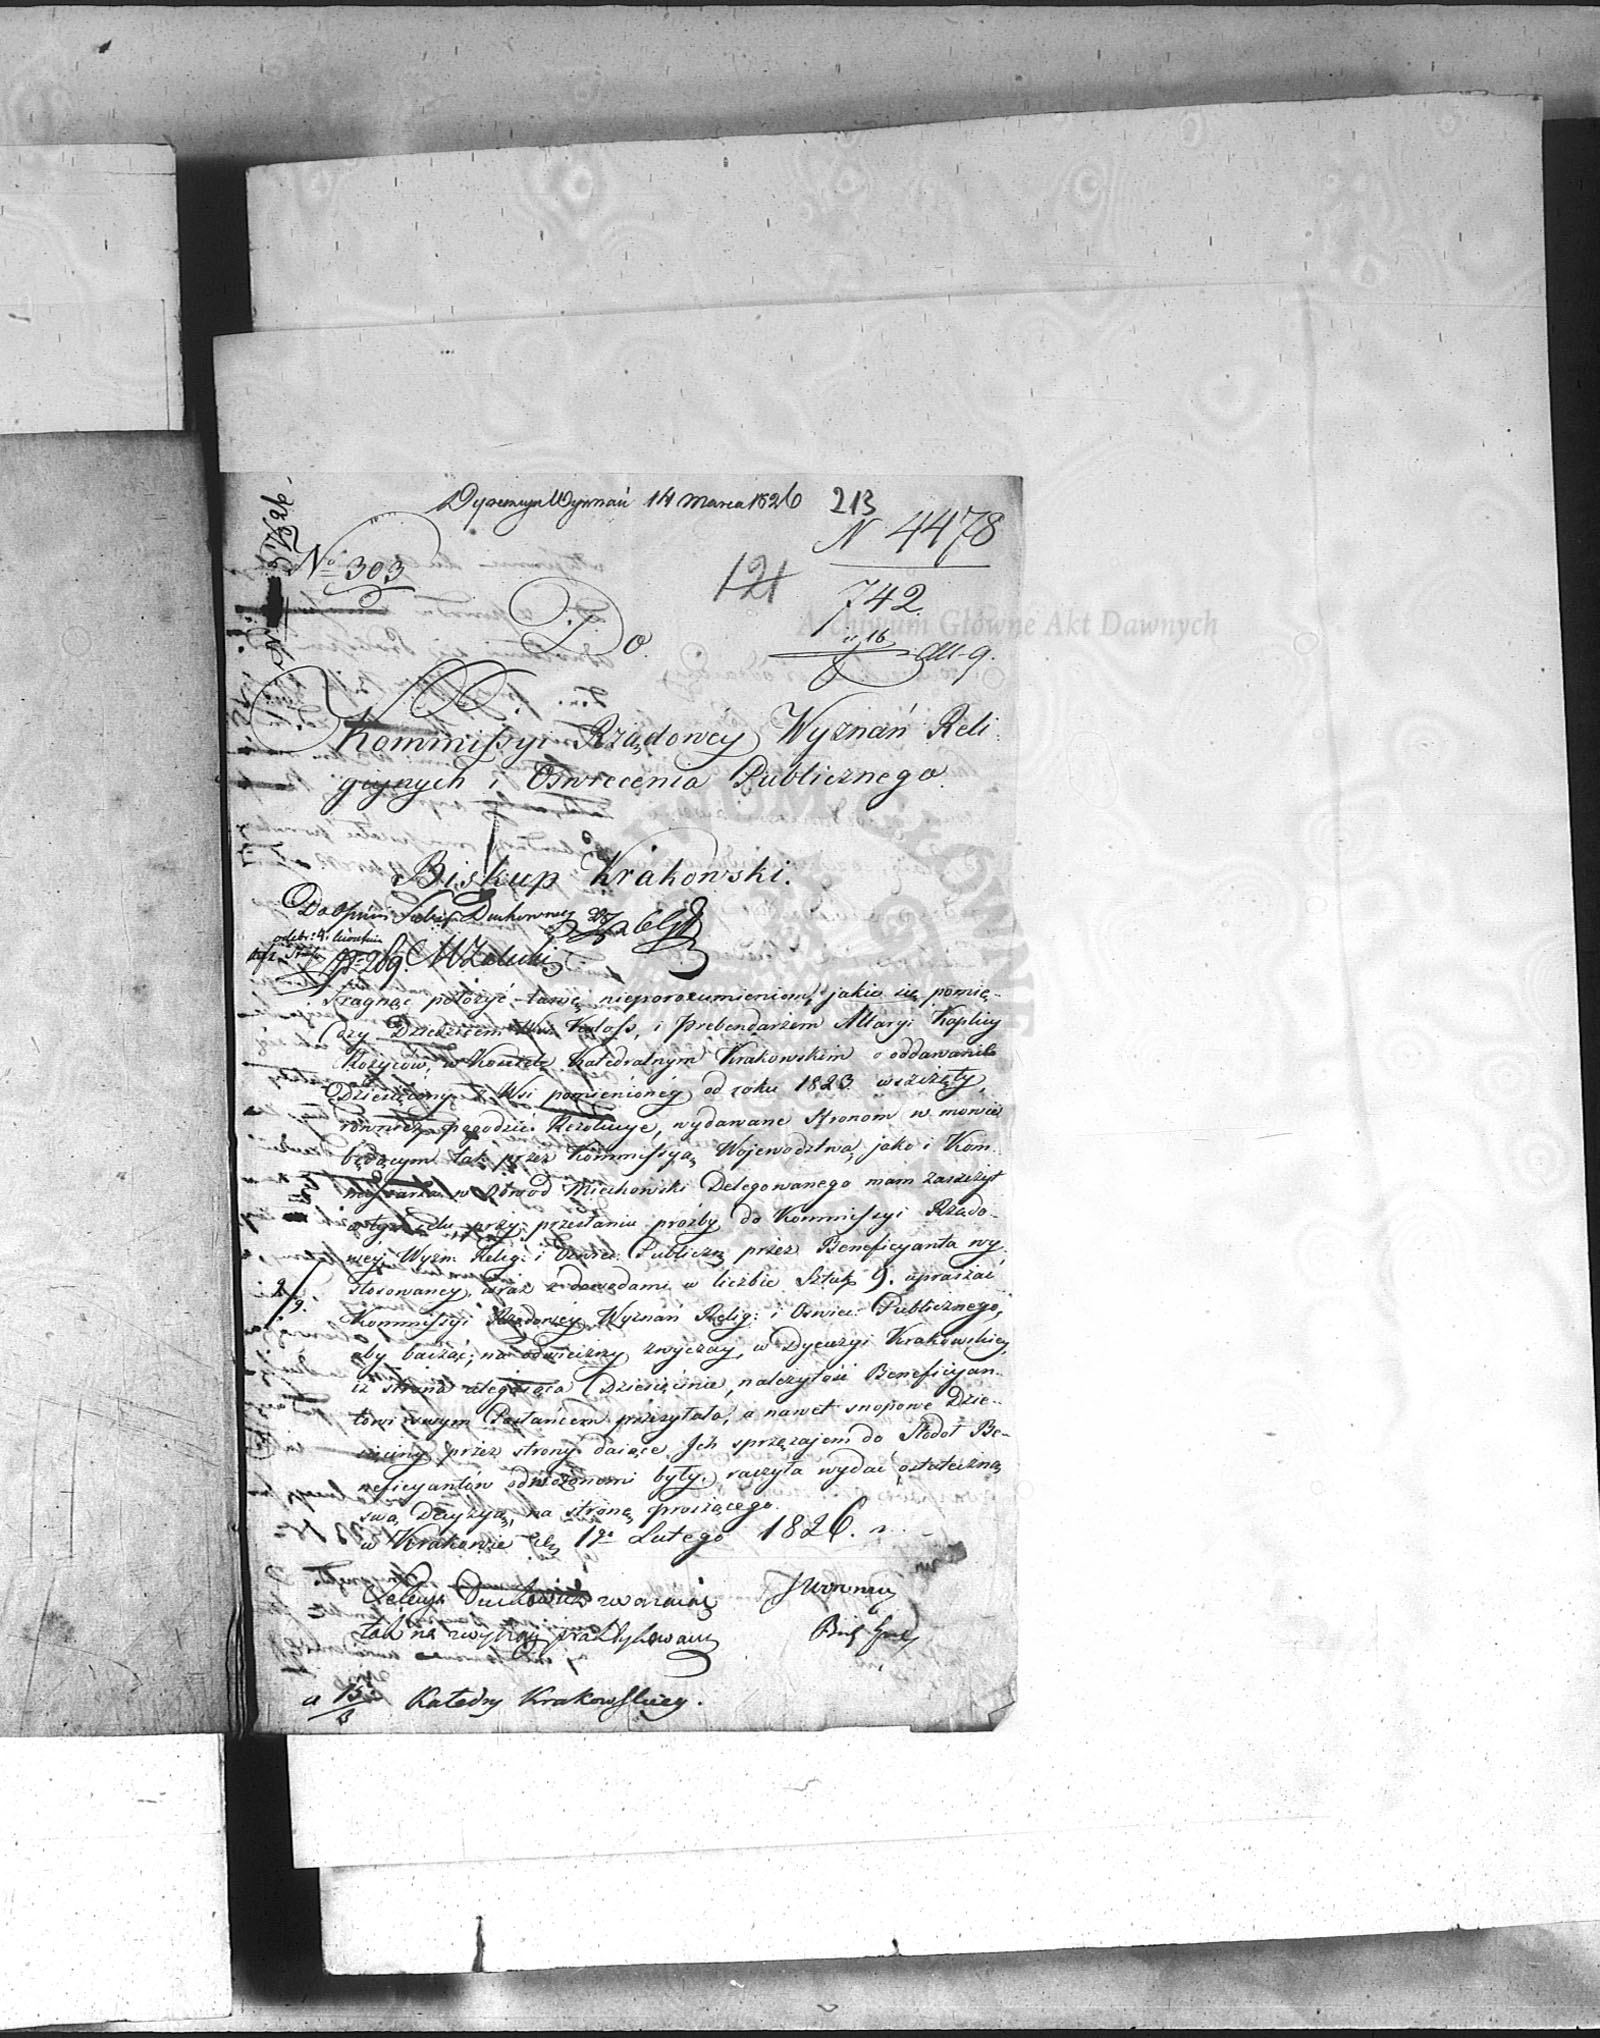 Wyznań 14 Marca 1826 213
N 4478
No 303
121
742
16
All. 9.
Do
Kommissyi Rządowey Wyznań Reli
giynych i Oswiecenia Publicznego.
Biskup Krakowski.
Do Opinii Duchowney
Nº 269.
Pragnąc położyć tamę nieporozumieniom, jakie się pomię-
dzy Dziedzicem Wsi i Prebendarzem Altaryi Kaplicy
w Kościele Katedralnym Krakowskim o oddawanie
Dziesięciny z Wsi pomienioney od roku 1823 wszczęły,
pogodzić Rezolucye, wydawane Stronom w mowie
będącym tak przez Kommissyą Wojewodztwa, jako i Kom-
missarza w Obwod Miechowski Delegowanego mam zaszczyt
w tym celu przy przesłaniu prozby do Kommissyi Rządo-
wey Wyzn. Relig: i Oswiec: Publiczn: przez Beneficyanta wy
stosowaney, wraz z dowodami w liczbie Sztuk 9. upraszać
9.
Kommissyi Rządowey Wyznań Relig: i Oswiec: Publicznego,
aby bacząc, na odwieczny zwyczay, w Dyecezyi Krakowskiey
iż strona ulegaiąca Dziesięcinie, należytość Beneficyan-
towi swym Posłańcem przesyłała, a nawet snopowe Dzie-
sięciny przez strony daiące Ich sprzężajem do Stodoł Be-
neficyantów odwożonemi były, raczyła wydać ostateczną
swą Decyzyą, na stronę proszącego.
w Krakowie dn. 1go Lutego 1826. r.
tak na zwyczay praktykowany
a 15/3 Katedry Krakowskiey.
Archiwum Główne Akt Dawnych